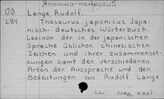 Японско-немецкий
DS Lange, Rudolf.
L84 Thesaurus japonicus. Japa-
nisch-deutsches Wörterbuch.
Lexikon der in der japanischen
Sprache üblichen chinesischen
Zeichen und ihrer zusammenset-
zungen samt den verschiedenen
Arten der Aussprache und den
Bedeutungen. Von Rudolf Lange